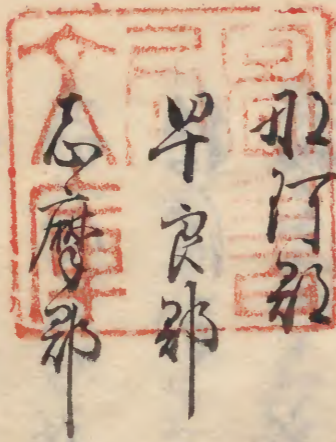 那珂郡
早良郡
志摩郡